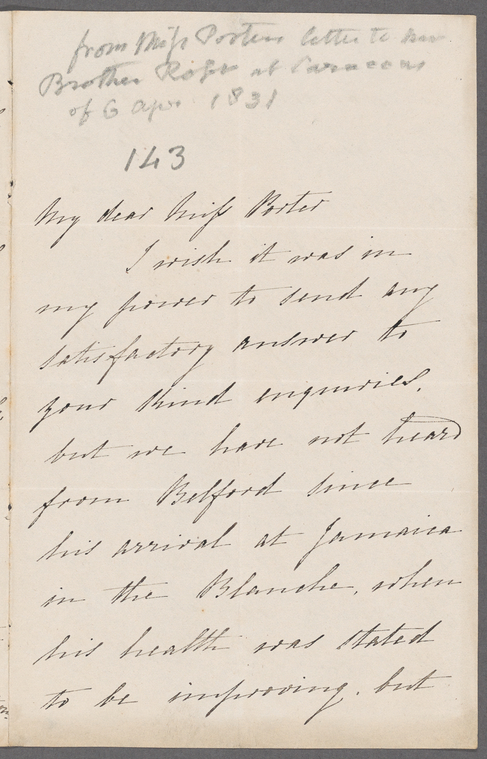 from Miss Porters letter to her
Brother Robt at Caraccas
of 6 Apr. 1831
143
My dear Miss Porter
I wish it was in
my power to send any
satisfactory answer to
your kind enquiries,
but we have not heard
from Belford since
his arrival at Jamaica
in the Blanche, when
his health was stated
to be improving. but